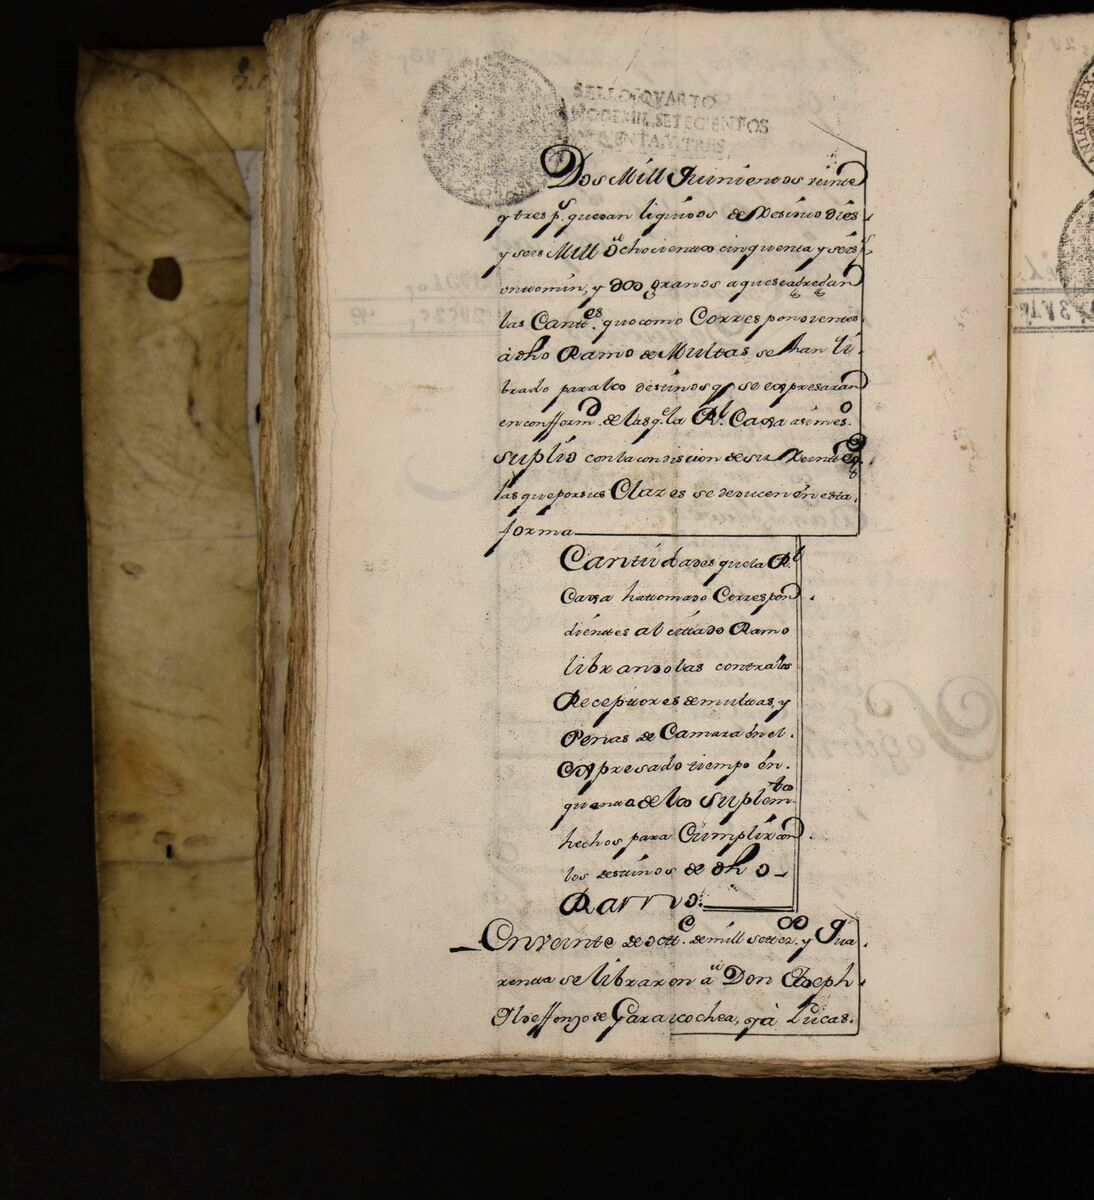 SELLO QVARTO
SETECIENTOS
ENTA Y TRES.
Dos Mill Quinientos veinte
y tres p.s quedan liquidos de Residuo dies
y seis Mill ochocientos cinquenta y seis p.s
un tomin, y dos granos a que se agregan
las Cantt.es que como Correspondientes
à dho Ramo de Multas se han li-
brado para los destinos q.e se expresaran
en confform.d de las q.e la R.l Caxa asi mes.o
suplió con la condision de su Reinteg.o
las que por sus Clases se deducen en esta
forma
Cantidades que la R.l
Caxa ha tomado Correspon
dientes al cittado Ramo
librandolas contra los
Receptores de multas, y
Penas de Camara en el
Expresado tiempo en
quenta de los suplem.tos
hechos para Cumplir con
los destinos de dho
Ramo.
En veinte de octt.e de mill settez.os y Qua
renta se libraron a Don Joseph
Ildeffonzo de Garaicochea, y à Lucas